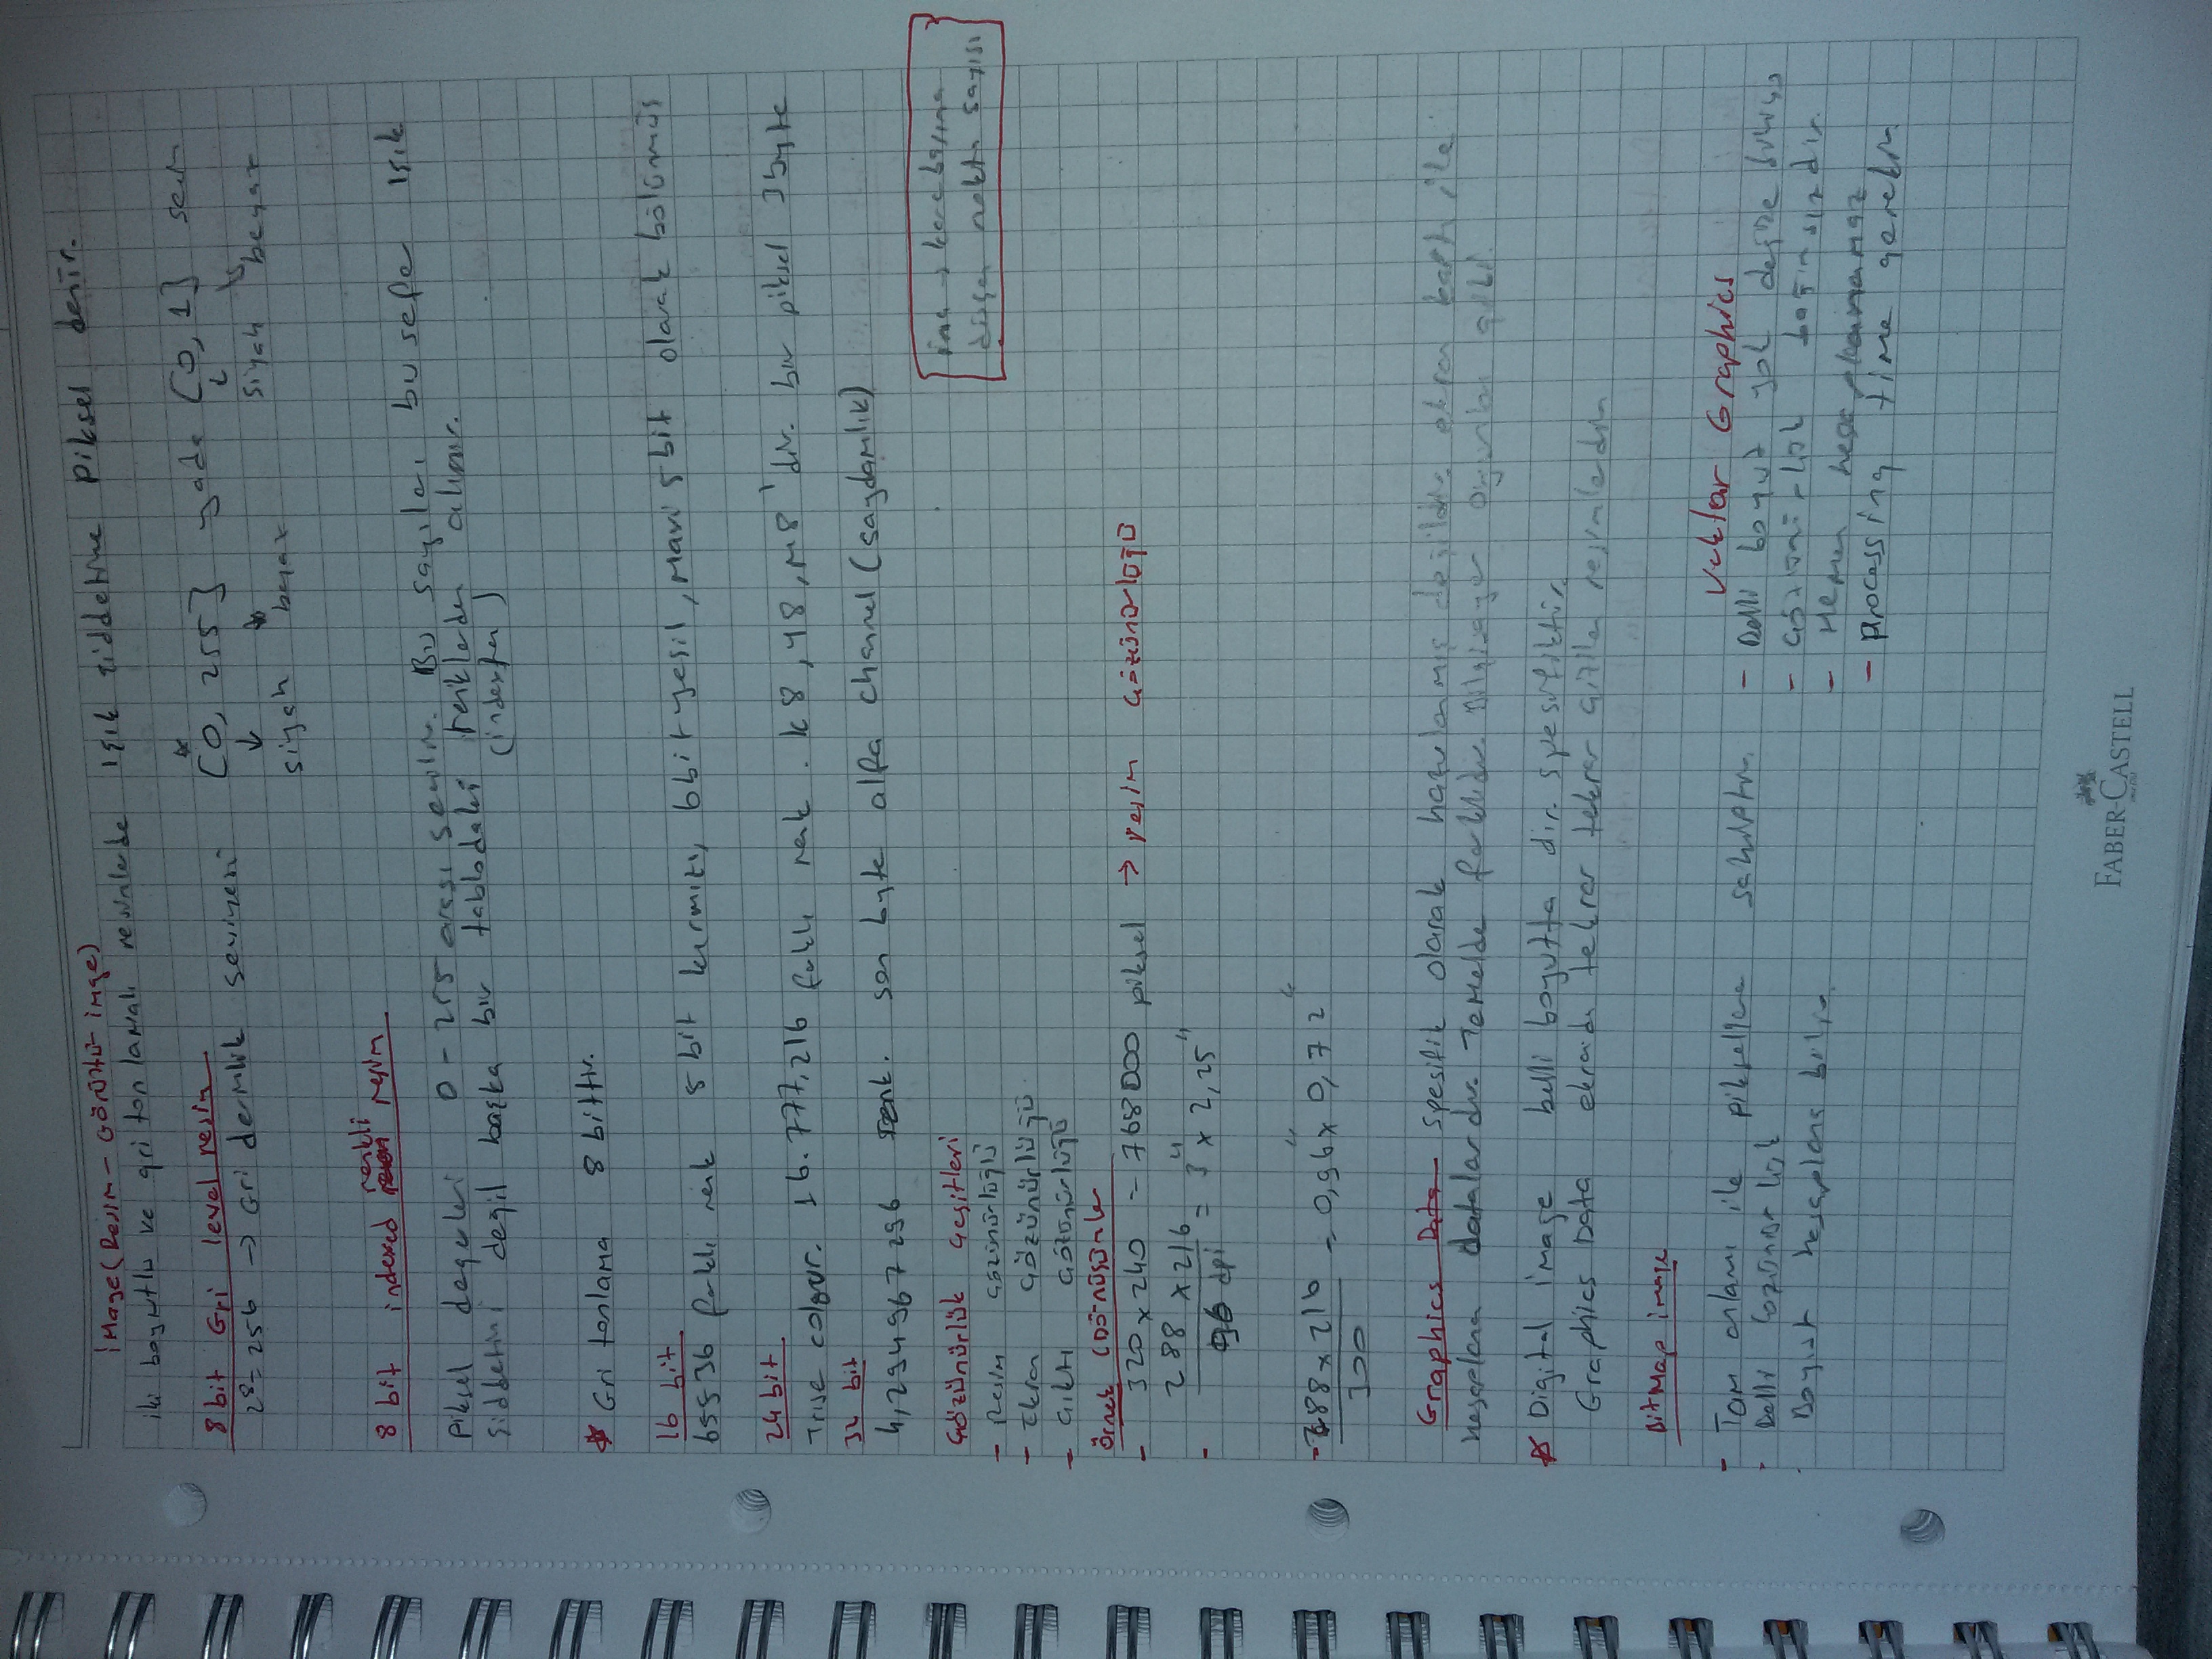 image (Resim - Görüntü - imge)
iki boyutlu ve gri tonlamalı resimlerde ışık şiddetine piksel denir.
8 bit Gri level resim
2⁸=256 → Gri derinlik seviyesi [0, 255] yada [0, 1]
siyah beyaz siyah beyaz
8 bit indexed renkli resim
piksel değerleri 0-255 arası seçilir. Bu sayılar bu sefer ışık
şiddetini değil başka bir tablodaki renklerden alınır.
(indexten)
* Gri tonlama 8 bittir.
16 bit
65536 farklı renk 5 bit kırmızı, 6 bit yeşil, mavi 5 bit olarak bölünmüş
24 bit
True colour. 16.777.216 farklı renk. K8, Y8, M8'dir. bir piksel 3 byte
32 bit
4,294967296 renk. son byte alfa channel (saydamlık)
Çözünürlük Çeşitleri
- Resim Çözünürlüğü
- Ekran Çözünürlüğü
- Çıktı Çözünürlüğü
inç → kare başına
düşen nokta sayısı
Örnek (Dönüşümler
- 320 x 240 = 768000 piksel → resim Çözünürlüğü
- 288 x 216 / 96 dpi = 3" x 2,25"
- 288 x 216 / 300 = 0,96" x 0,72"
Graphics Data spesifik olarak hazırlanmış değildir. ekran kartı ile
hesaplanan datalardır. Temelde farklıdır. Bilgisayar oyunları gibi.
* Digital image belli boyutta dır. spesifiktir.
Graphics Data ekranda tekrar tekrar çizilen resimlerdir
BitMap image
- Tam anlamı ile piksellere sahiptir.
- Belli Çözünürlük
Boyut hesaplanabilir.
Vektor Graphics
- Belli boyut yok
- Çözünürlük bağımsızdır.
- Hemen hesaplanamaz
- processing time gerekir
FABER-CASTELL